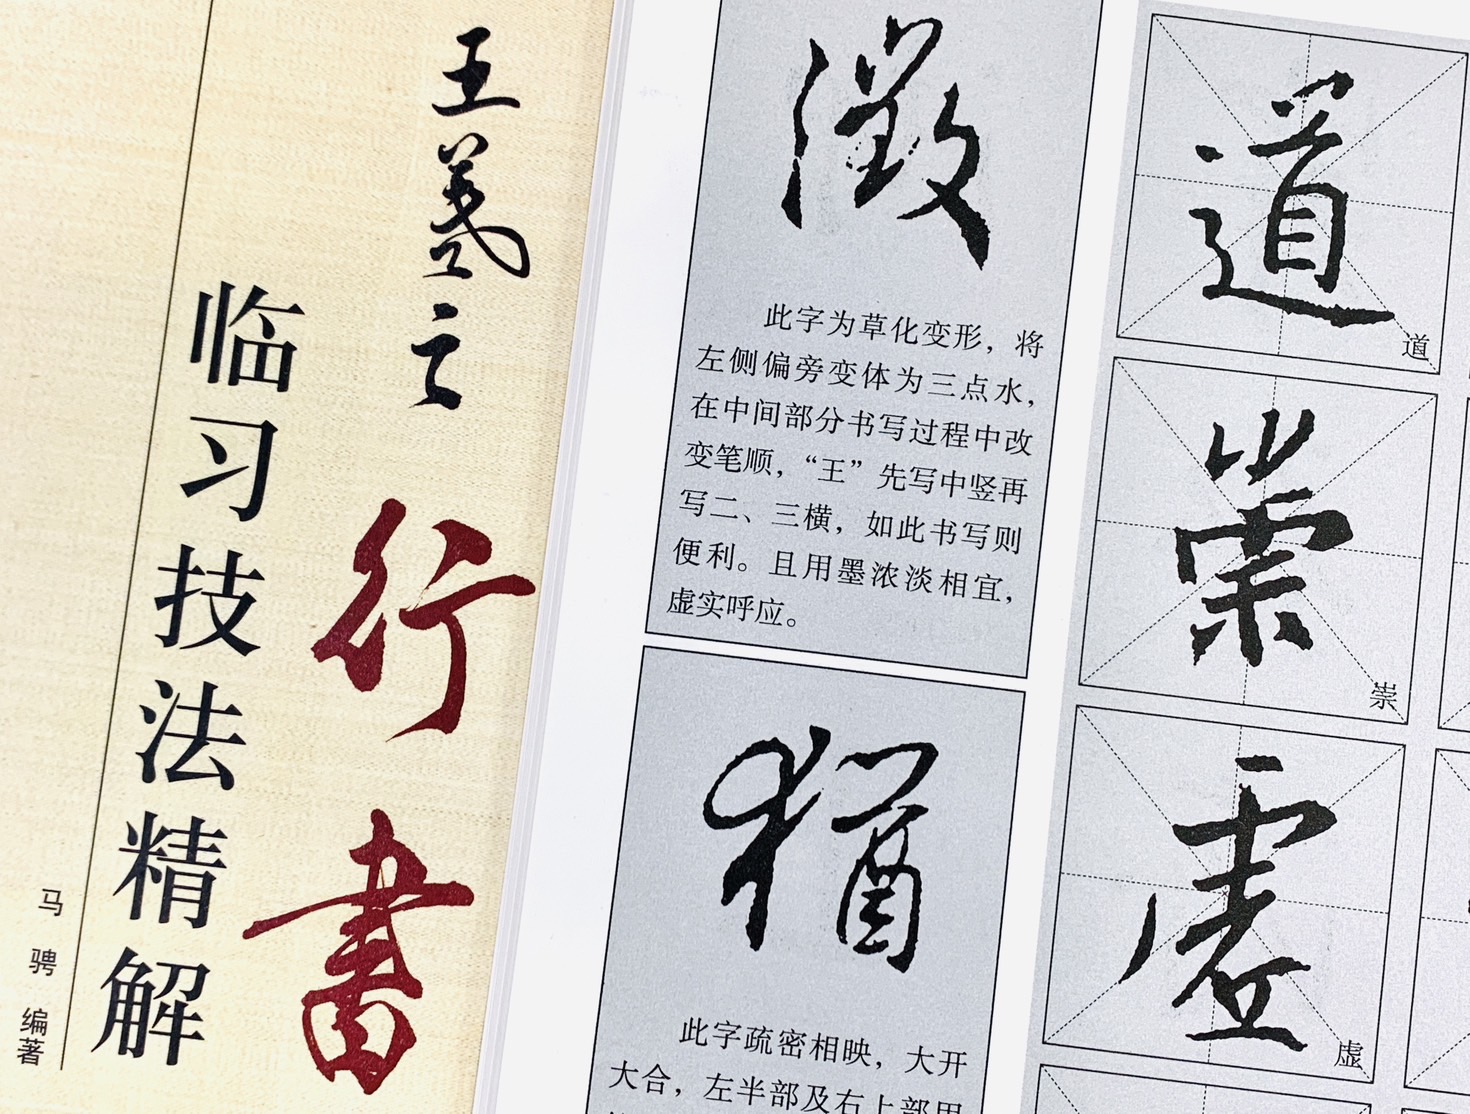 王羲之
行書
临习技法精解
马骋 编著
徵
此字为草化变形，将
左侧偏旁变体为三点水，
在中间部分书写过程中改
变笔顺，“王”先写中竖再
写二、三横，如此书写则
便利。且用墨浓淡相宜，
虚实呼应。
猶
此字疏密相映，大开
大合，左半部及右上部用
道
道
崇
崇
虚
虚